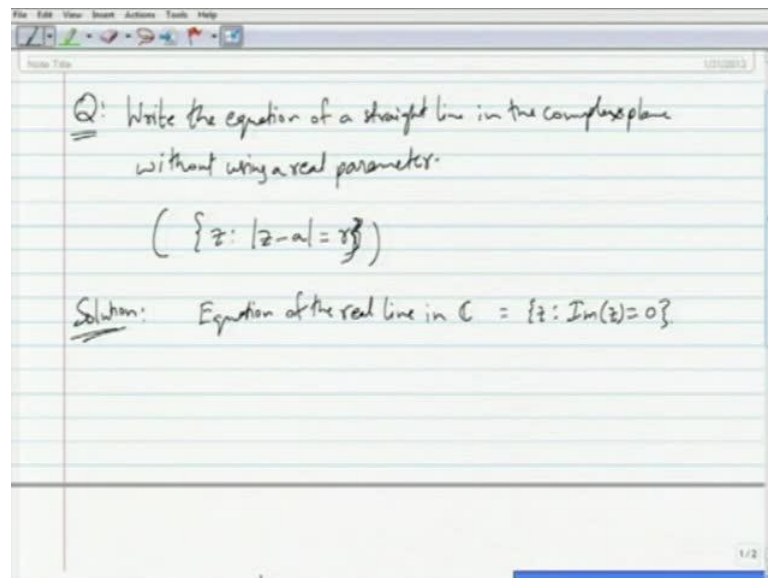 File Edit View Insert Actions Tools Help
Note Title
1/31/2013
Q: Write the equation of a straight line in the complex plane
without using a real parameter.
( {z: |z-a| = r} )
Solution: Equation of the real line in ℂ = {z: Im(z)=0}.
1/2